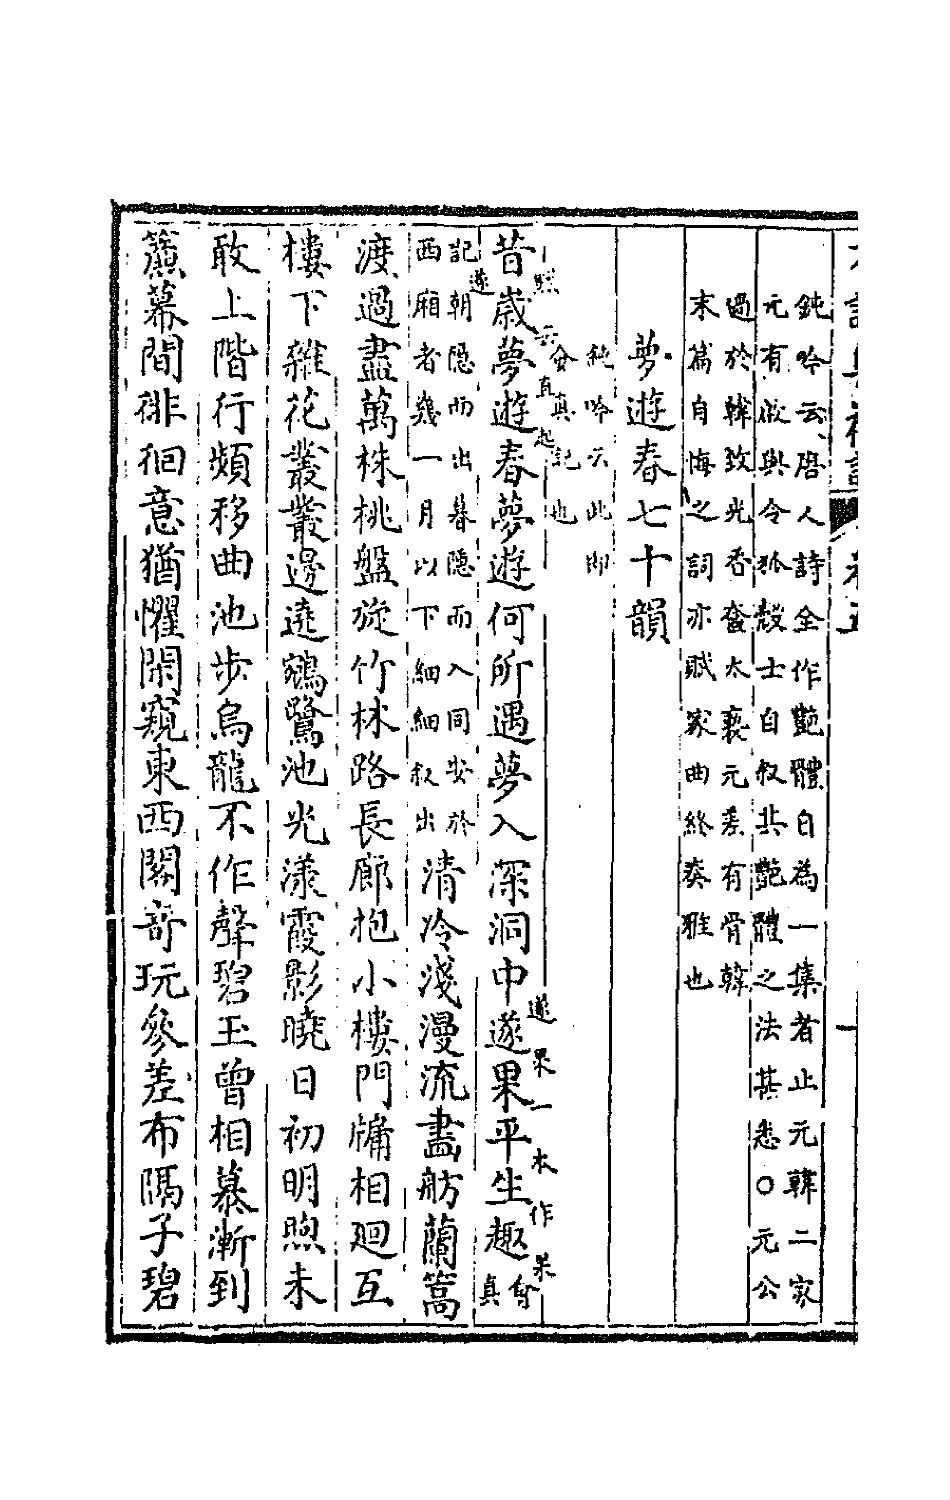 鈍吟云唐人詩全作艶體自為一集者止元韓二家
元有攸與令狐殼士自叙其艶體之法甚悉○元公
過於韓致光香奩太褻元差有骨韓
末篇自悔之詞亦賦家曲終奏雅也
夢遊春七十韻
鈍吟云此即
會真記也
昔歳夢遊春夢遊何所遇夢入深洞中遂果平生趣
默云直起
遂果一本作果遂
會真
記朝隠而出暮隠而入同安於
西廂者幾一月以下細細叙出
清冷淺漫流畫舫蘭篙
渡過盡萬株桃盤旋竹林路長廊抱小樓門牖相廻互
樓下雜花叢叢邊遶鵷鷺池光漾霞影曉日初明煦未
敢上階行頻移曲池步烏龍不作聲碧玉曾相慕漸到
簾幕間徘徊意猶懼閑窺東西閣奇玩參差布隔子碧